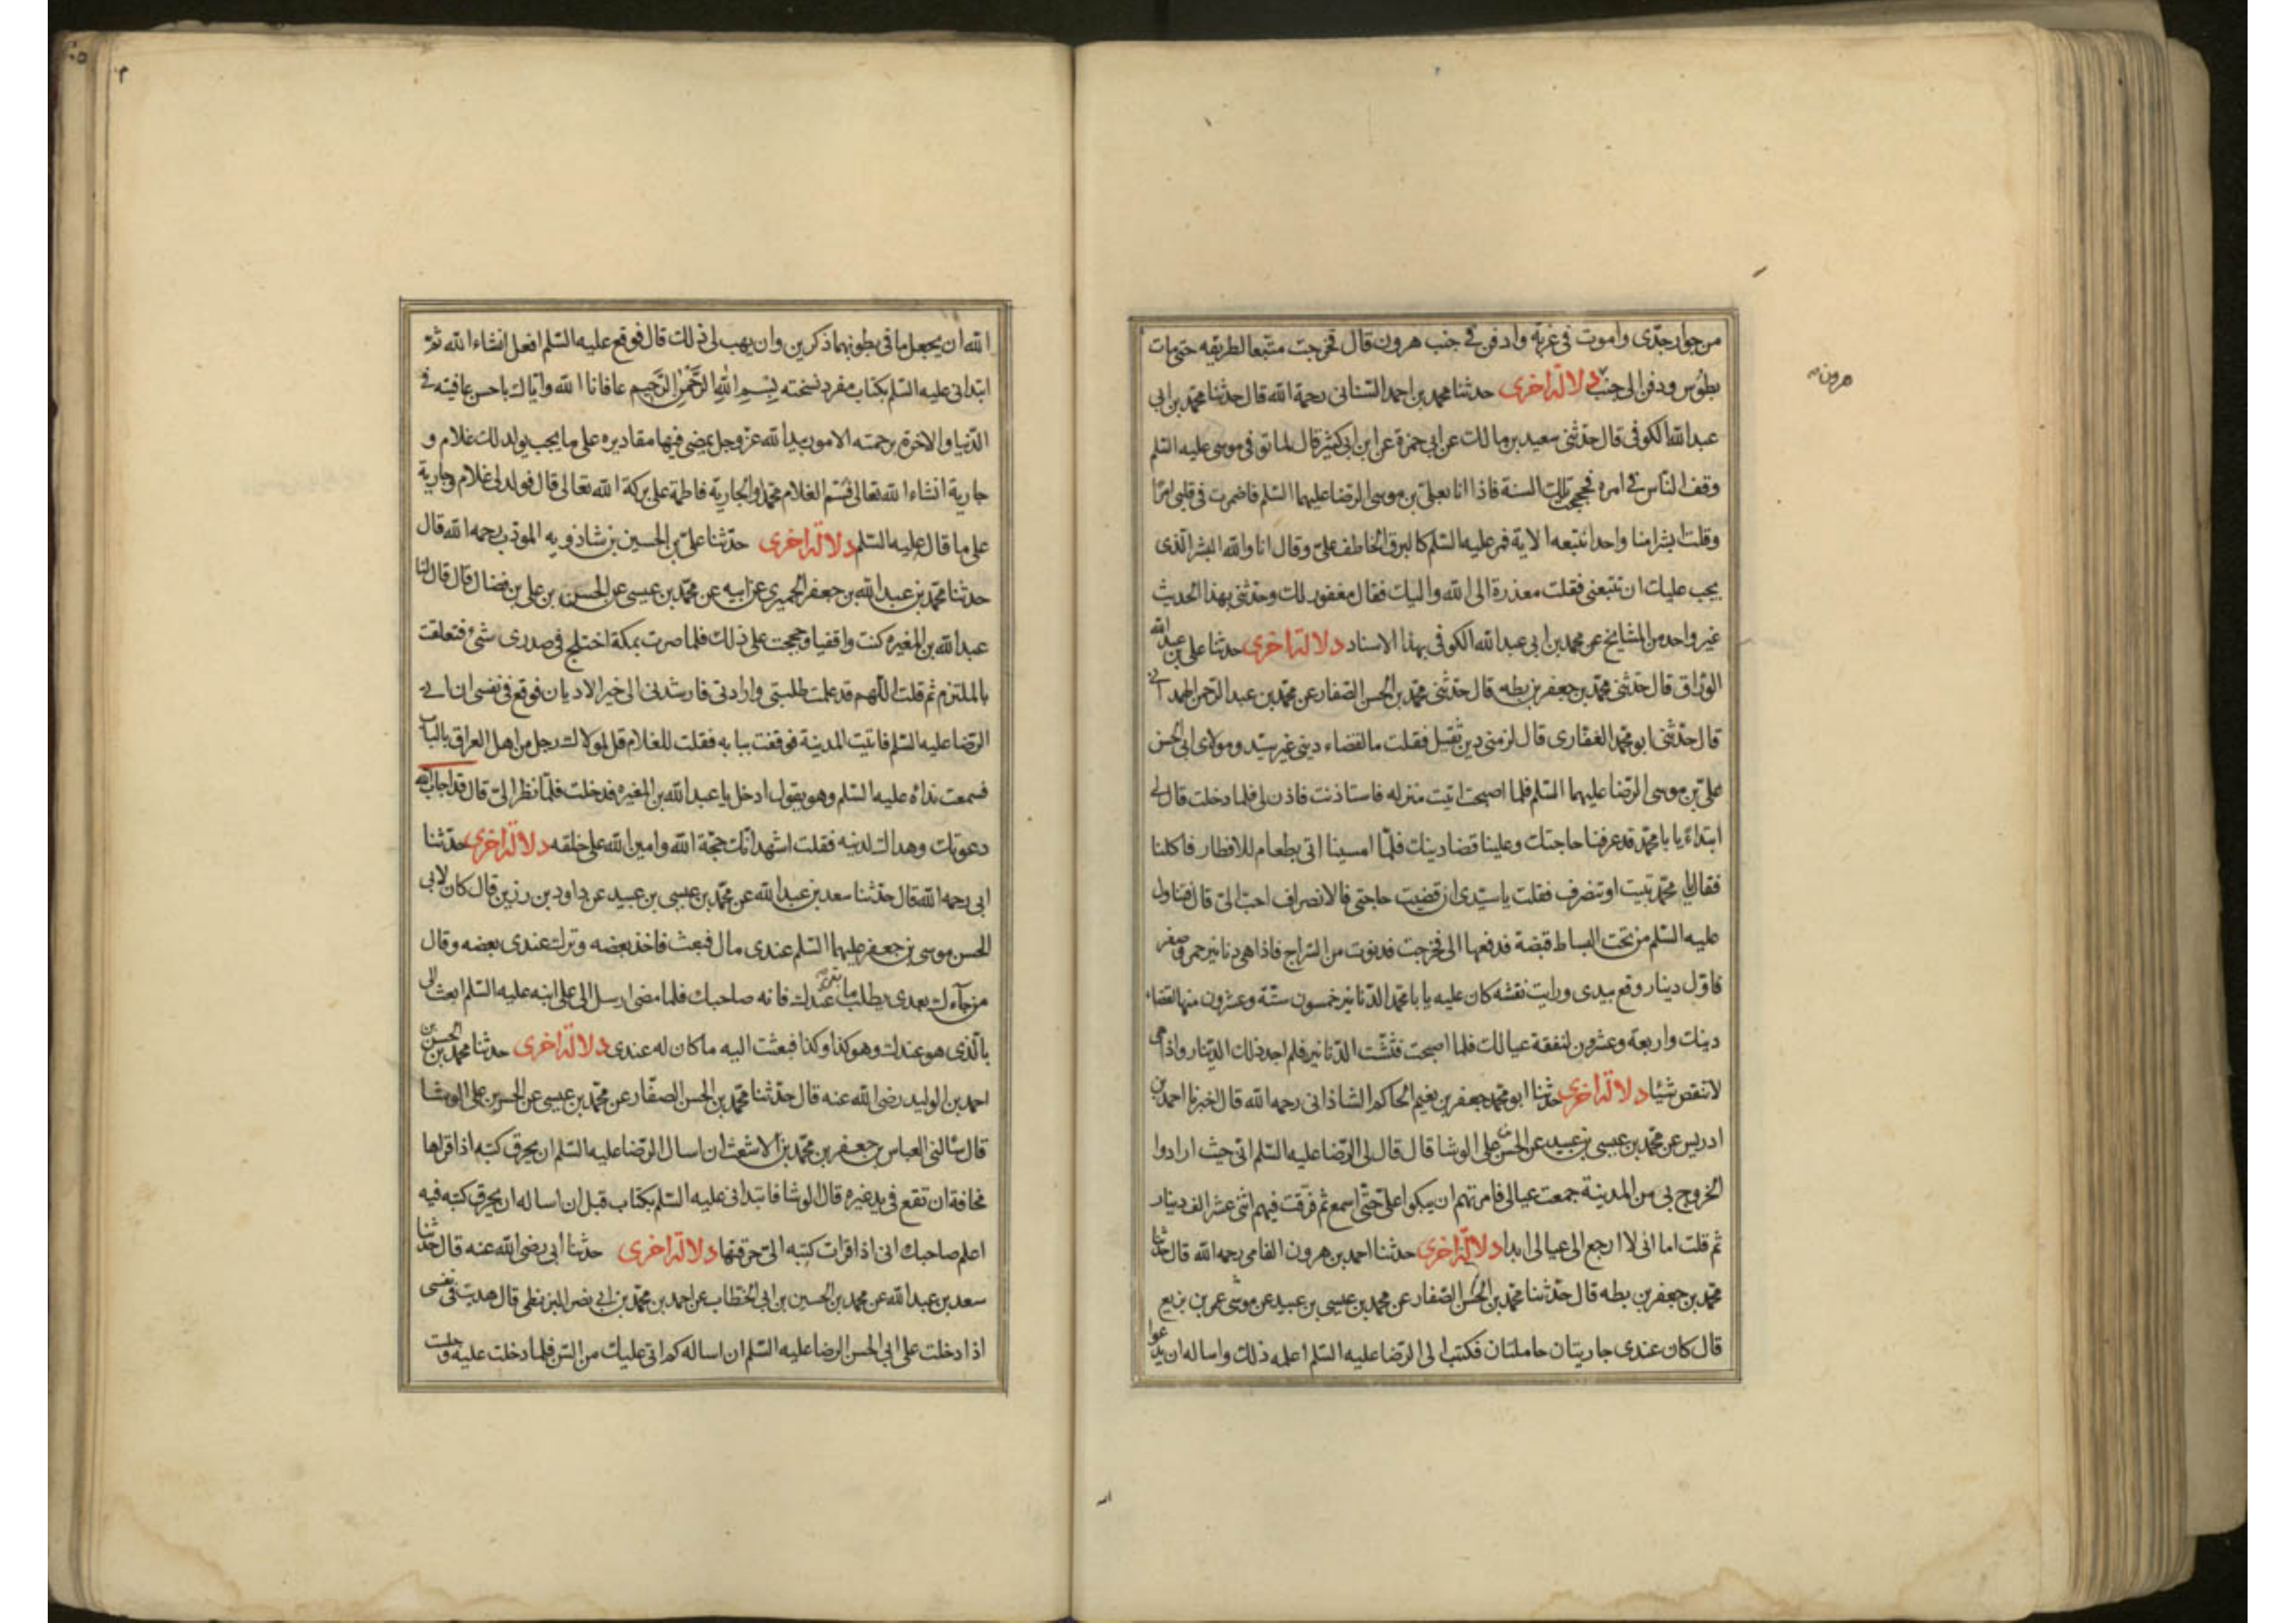 من جوار جدّى واموت فى غربة وادفن فى جنب هرون قال فخرجت متبعا لطريقه حتى مات
بطوس ودفن الى جنب دلالة اخرى حدثنا محمد بن احمد السنانى رحمة الله قال حدثنا محمد بن ابى
هرون
عبد الله الكوفى قال حدثنى سعيد بن مالك عن ابى حمزة عن ابن ابى كثير قال لما توفى موسى عليه السلم
وقف الناس فى امره فحججت تلك السنة فاذا انا بعلى بن موسى الرضا عليهما السلم فاضمرت فى قلبى امرا
وقلت ابشرا منا واحدا نتبعه الاية فمر عليه السلم كالبرق الخاطف علىّ وقال انا والله البشر الذى
يجب عليك ان تتبعنى فقلت معذرة الى الله واليك فقال مغفور لك وحدثنى بهذا الحديث
غير واحد من المشايخ عن محمد بن ابى عبد الله الكوفى بهذا الاسناد دلالة اخرى حدثنا على بن عبد الله
الوراق قال حدثنى محمد بن جعفر بن بطه قال حدثنى محمد بن الحسن الصفار عن محمد بن عبد الرحمن الهمدانى
قال حدثنى ابو محمد الغفارى قال لزمنى دين ثقيل فقلت ما لقضاء دينى غير سيدى ومولاى ابى الحسن
على بن موسى الرضا عليهما السلم فلما اصبحت اتيت منزله فاستاذنت فاذن لى فلما دخلت قال لى
ابتداءً يا با محمد قد عرفنا حاجتك وعلينا قضا دينك فلما امسينا اتى بطعام للافطار فاكلنا
فقال يا با محمد تبيت او تنصرف فقلت يا سيدى ان قضيت حاجتى فالانصراف احب الىّ قال فتناول
عليه السلم من تحت البساط قبضة فدفعها الى فخرجت فدنوت من السراج فاذا هى دنانير حمر وصفر
فاول دينار وقع بيدى ورايت نقشه كان عليه يا با محمد الدنانير خمسون ستة وعشرون منها لقضاء
دينك واربعة وعشرون لنفقة عيالك فلما اصبحت فتشت الدنانير فلم اجد ذلك الدينار واذا هى
لا تنقص شيئا دلالة اخرى حدثنا ابو محمد جعفر بن نعيم الحاكم الشاذانى رحمه الله قال اخبرنا احمد بن
ادريس عن محمد بن عيسى بن عبيد عن الحسن بن على الوشا قال قال لى الرضا عليه السلم انى حيث ارادوا
الخروج بى من المدينة جمعت عيالى فامرتهم ان يبكوا علىّ حتى اسمع ثم فرقت فيهم اثنى عشر الف دينار
ثم قلت اما انى لا ارجع الى عيالى ابدا دلالة اخرى حدثنا احمد بن هرون الفامى رحمه الله قال حدثنا
محمد بن جعفر بن بطه قال حدثنا محمد بن الحسن الصفار عن محمد بن عيسى بن عبيد عن موسى عمر بن بزيع
قال كان عندى جاريتان حاملتان فكتبت الى الرضا عليه السلم اعلمه ذلك واساله ان يدعوا
الله ان يجعل ما فى بطونهما ذكرين وان يهب لى ذلك قال فوقع عليه السلم افعل انشاء الله ثم
ابتدانى عليه السلم بكتاب مفرد نسخته بسم الله الرحمن الرحيم عافانا الله واياك باحسن عافيته فى
الدنيا والاخرة برحمته الامور بيد الله عز وجل يمضى فيها مقاديره على ما يحب يولد لك غلام و
جارية انشاء الله تعالى فسمّ الغلام محمدا والجارية فاطمة على بركة الله تعالى قال فولد لى غلام وجارية
على ما قال عليه السلم دلالة اخرى حدثنا على بن الحسين بن شاذويه المودب رحمه الله قال
حدثنا محمد بن عبد الله بن جعفر الحميرى عن ابيه عن محمد بن عيسى عن الحسن بن على بن فضال قال قال لنا
عبد الله بن المغيره كنت واقفيا وحججت على ذلك فلما صرت بمكة اختلج فى صدرى شئ فتعلقت
بالملتزم ثم قلت اللهم قد علمت طلبتى وارادتى فارشدنى الى خير الاديان فوقع فى نفسى ان اتى
الرضا عليه السلم فاتيت المدينة فوقفت ببابه فقلت للغلام قل لمولاك رجل من اهل العراق بالباب
فسمعت نداه عليه السلم وهو يقول ادخل يا عبد الله بن المغيره فدخلت فلما نظر الىّ قال قد اجاب الله
دعوتك وهداك لدينه فقلت اشهد انك حجة الله وامين الله على خلقه دلالة اخرى حدثنا
ابى رحمه الله قال حدثنا سعد بن عبد الله عن محمد بن عيسى بن عبيد عن داود بن رزين قال كان لابى
الحسن موسى بن جعفر عليهما السلم عندى مال فبعث فاخذ بعضه وترك عندى بعضه وقال
من جآءك بعدى يطلب ما بقى عندك فانه صاحبك فلما مضى ارسل الى على ابنه عليه السلم ابعث الى
بالذى هو عندك وهو كذا وكذا فبعثت اليه ما كان له عندى دلالة اخرى حدثنا محمد بن الحسن بن
احمد بن الوليد رضى الله عنه قال حدثنا محمد بن الحسن الصفار عن محمد بن عيسى عن الحسن بن على الوشا
قال سالنى العباس بن جعفر بن محمد بن الاشعث ان اسال الرضا عليه السلم ان يحرق كتبه اذا قراها
مخافة ان تقع فى يد غيره قال الوشا فابتدانى عليه السلم بكتاب قبل ان اساله ان يحرق كتبه فيه
اعلم صاحبك انى اذا قرات كتبه الىّ حرقتها دلالة اخرى حدثنا ابى رضى الله عنه قال حدثنا
سعد بن عبد الله عن محمد بن الحسين بن ابى الخطاب عن احمد بن محمد بن ابى نصر البزنطى قال هديت فى نفسى
اذا دخلت على ابى الحسن الرضا عليه السلم ان اساله كم اتى عليك من السن فلما دخلت عليه وجلست